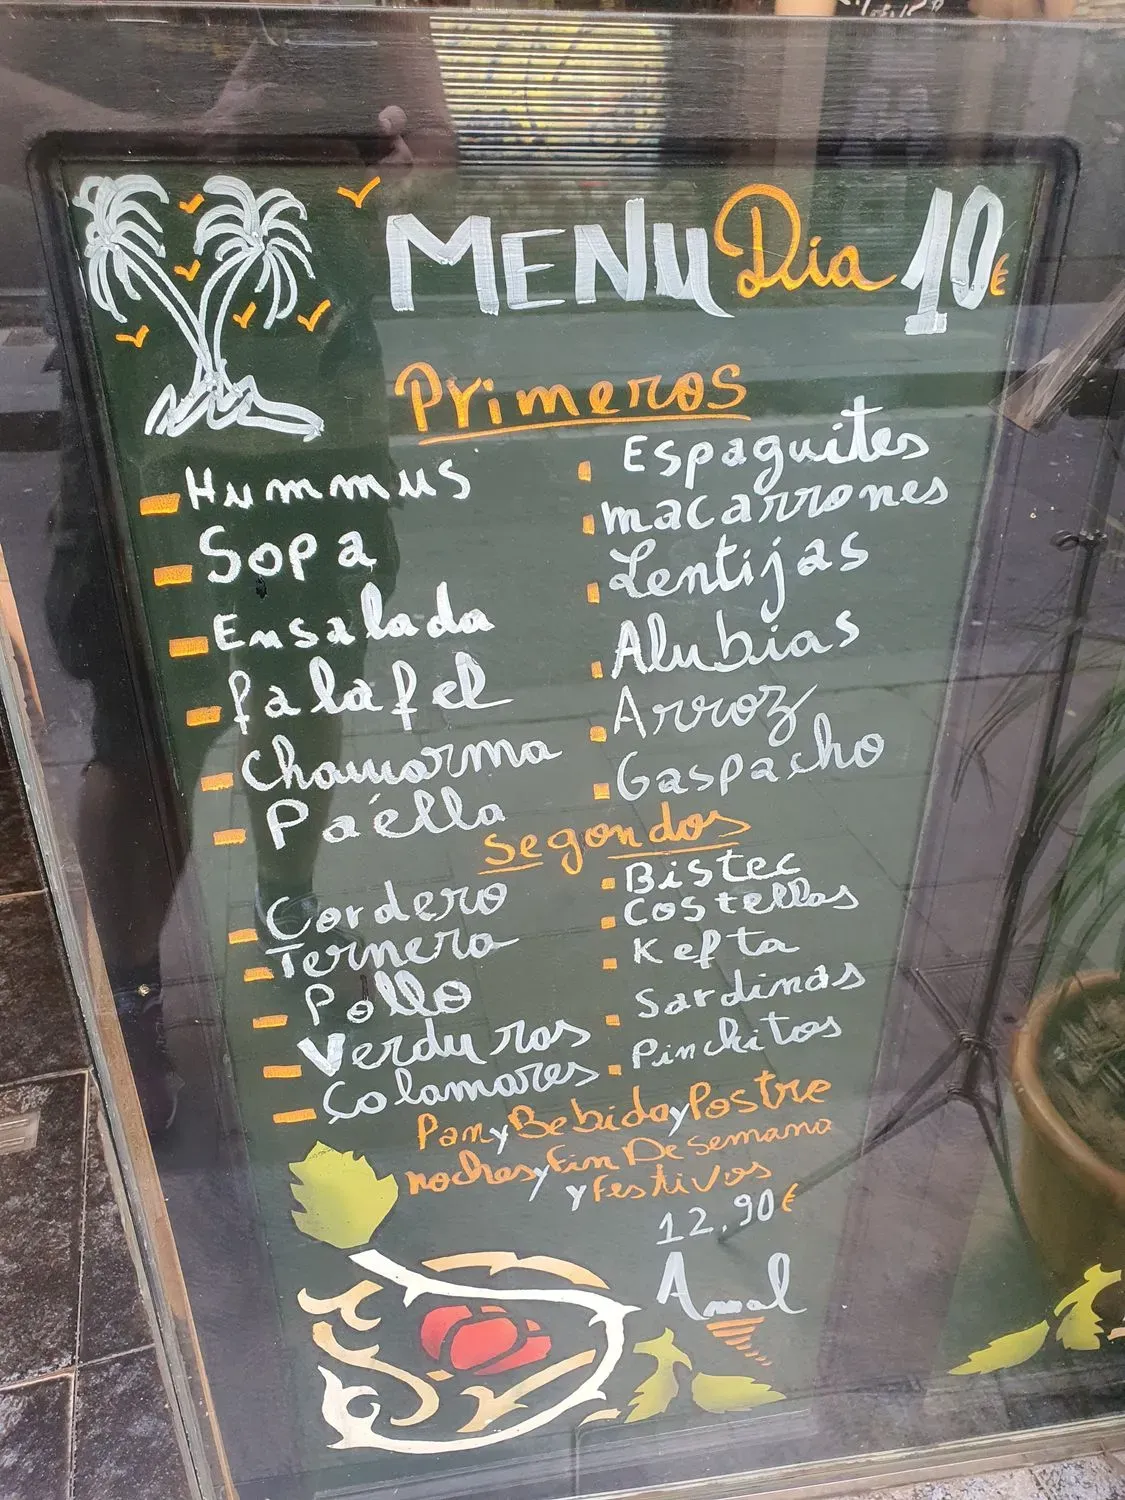 MENU Dia 10€
Primeros
Hummus
Sopa
Ensalada
falafel
Chawarma
Paélla
Espaguites
macarrones
Lentijas
Alubias
Arroz
Gaspacho
segondos
Cordero
Ternera
Pollo
Verduras
Calamares
Bistec
Costellas
Kefta
Sardinas
Pinchitos
Pan y Bebida y Postre
noches y Fin De semana
y Festivos
12.90€
Amal